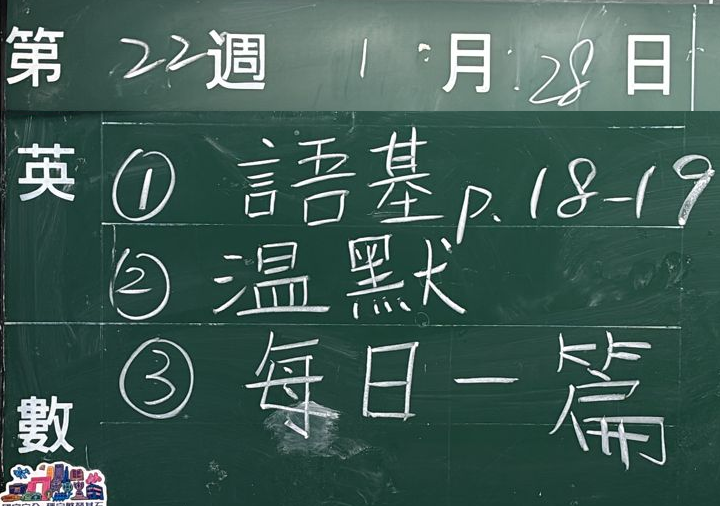 第22週 1月28日
英
① 語基p.18-19
② 温默
③ 每日一篇
數